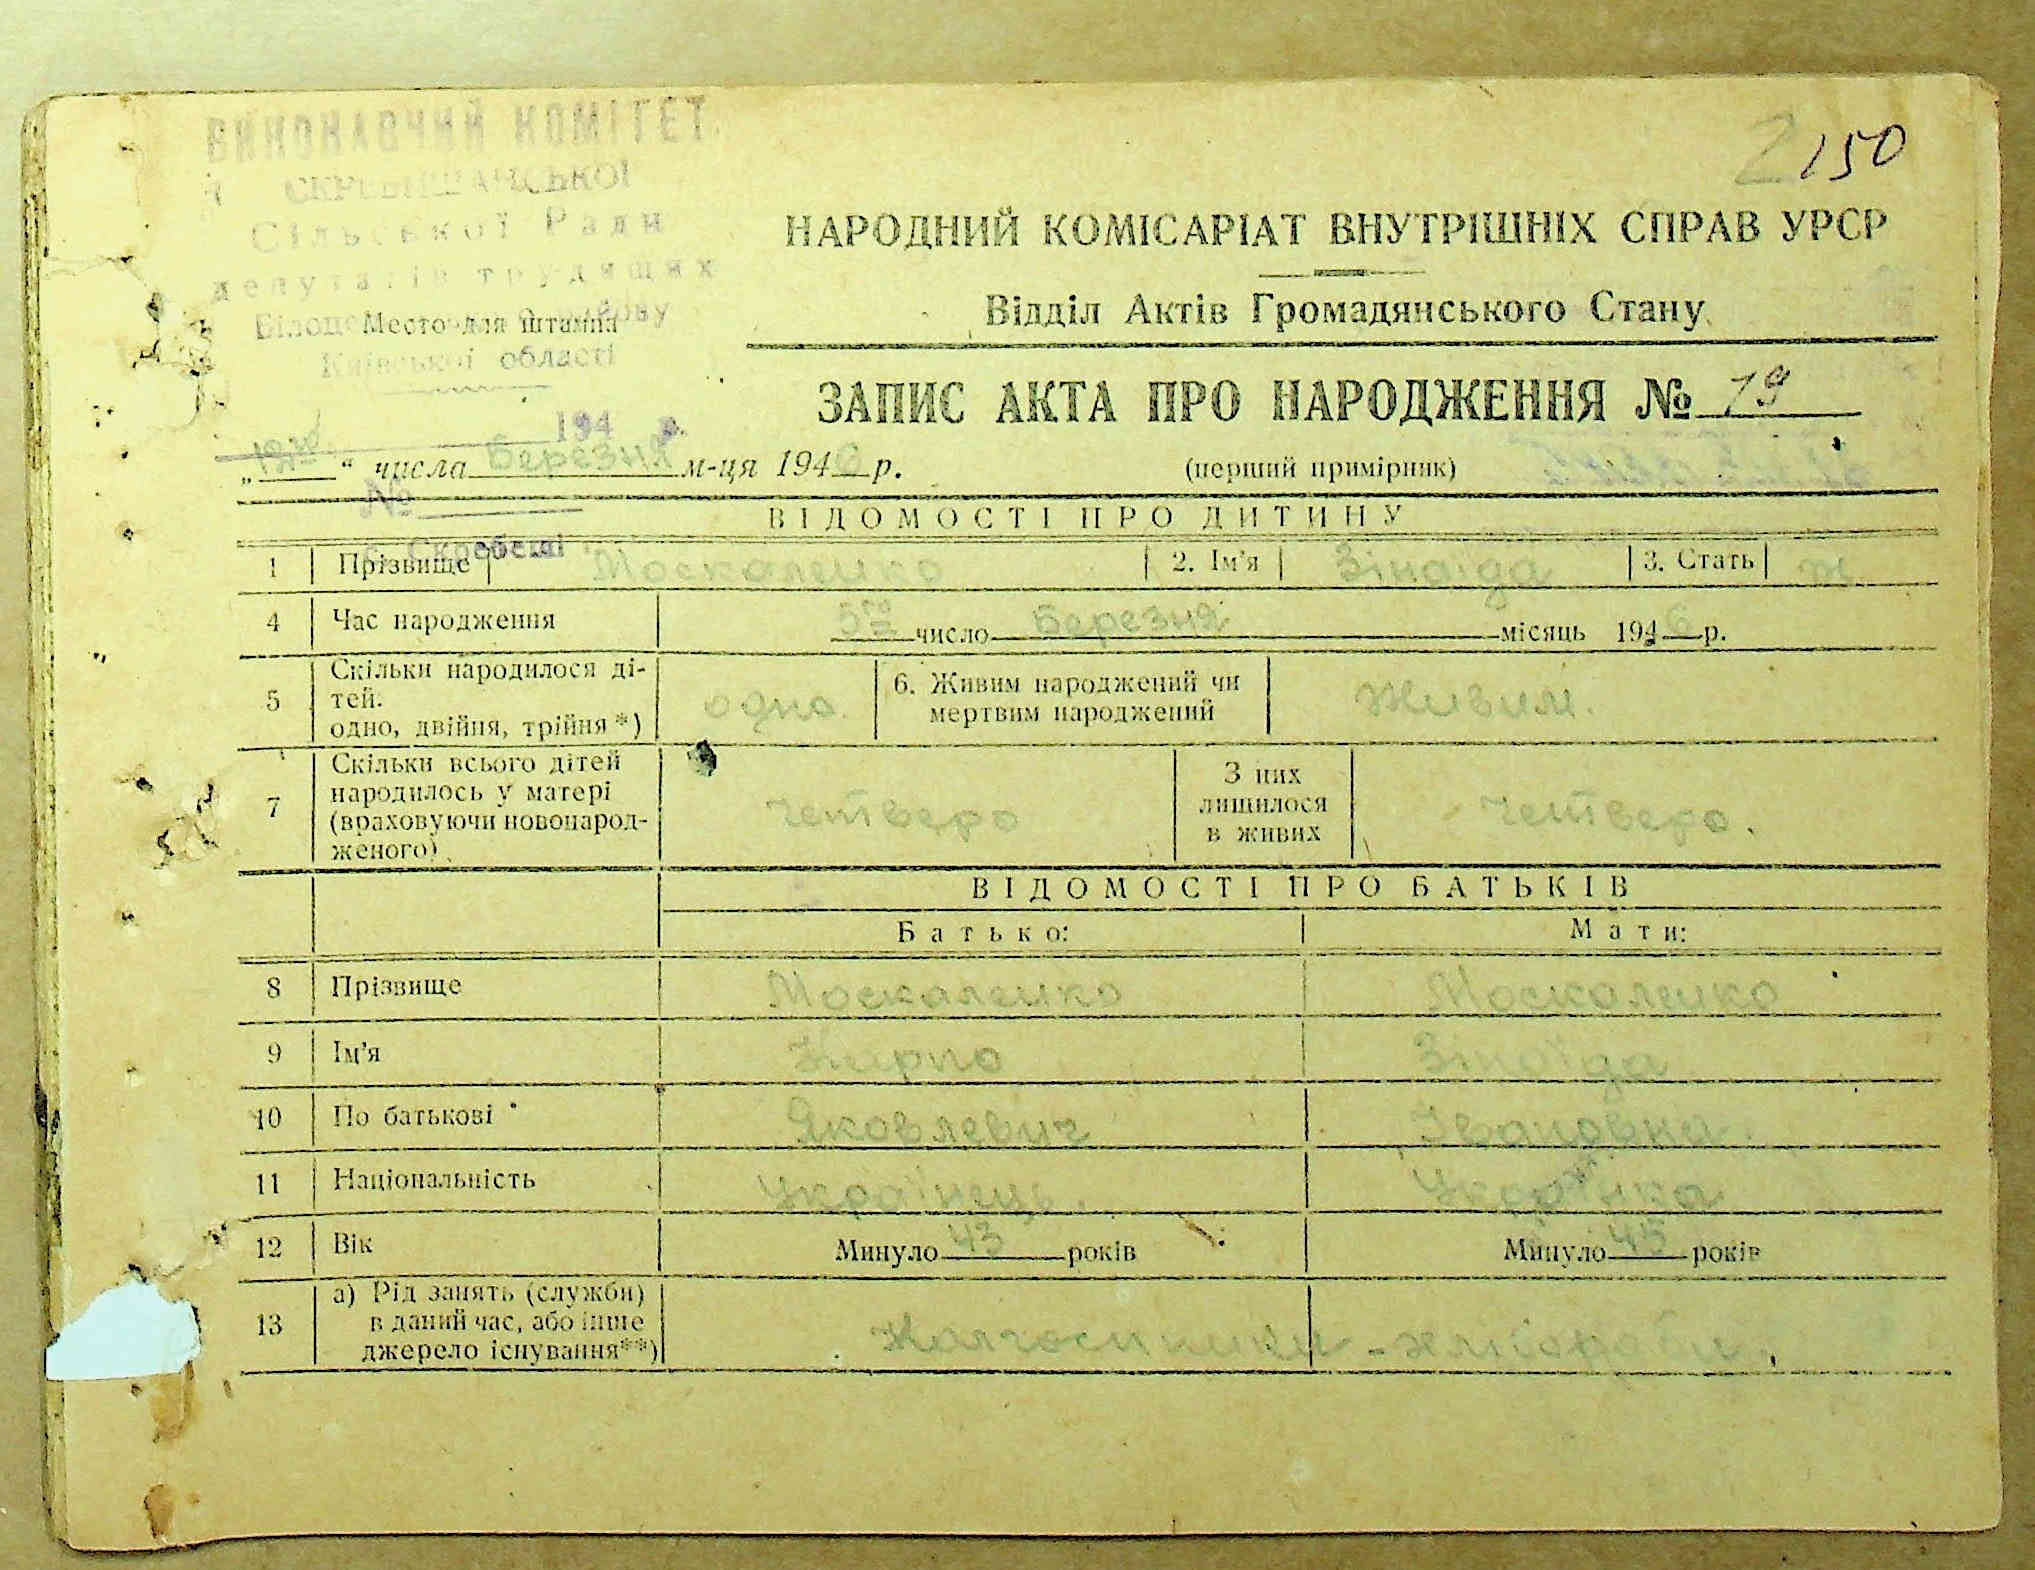 ВИКОНАВЧИЙ КОМІТЕТ
Сільської Ради
депутатів трудящих
Київської області
Место для штампа
194 р.
№
с. Скребеші
2150
НАРОДНИЙ КОМІСАРІАТ ВНУТРІШНІХ СПРАВ УРСР
Відділ Актів Громадянського Стану
ЗАПИС АКТА ПРО НАРОДЖЕННЯ № 19
„ “ числа Березня м-ця 1946 р. (перший примірник)
ВІДОМОСТІ ПРО ДИТИНУ
1 Прізвище Москаленко 2. Ім'я Зіноїда 3. Стать ж
4 Час народження 5го число Березня місяць 1946 р.
5 Скільки народилося ді-
тей.
одно, двійня, трійня *) одно. 6. Живим народжений чи
мертвим народжений Живим.
7 Скільки всього дітей
народилось у матері
(враховуючи новонарод-
женого) четверо З них
лишилося
в живих четверо.
ВІДОМОСТІ ПРО БАТЬКІВ
Батько: Мати:
8 Прізвище Москаленко Москаленко
9 Ім'я Карпо Зіноїда
10 По батькові Яковлевич Івановна
11 Національність Українець. Українка
12 Вік Минуло 43 років Минуло 45 років
13 а) Рід занять (служби)
в даний час, або інше
джерело існування**) Колгоспники - хлібороби.